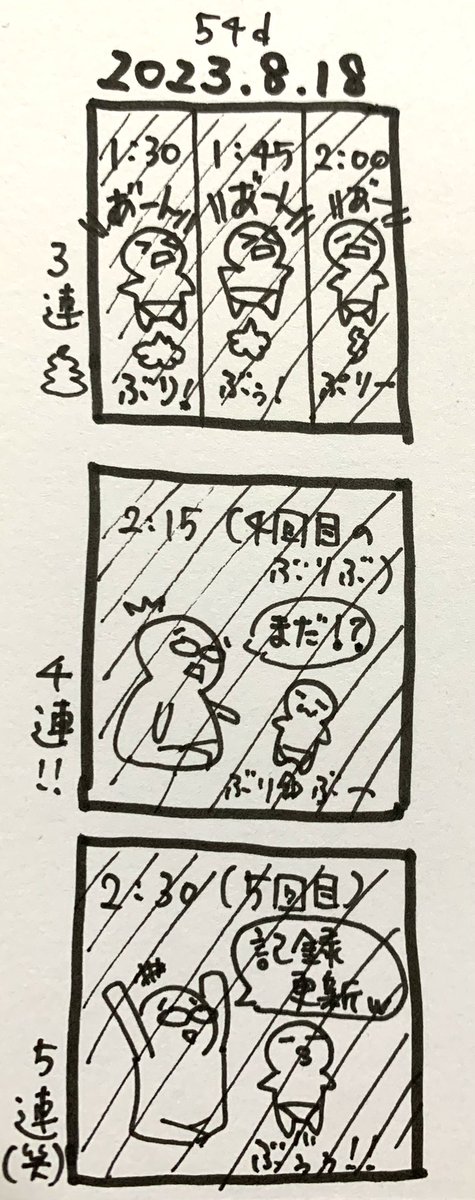 54d
2023.8.18
3連
1:30
あ゛ーん
ぶり!
1:45
あ゛ーん
ぶぅ!
2:00
あ゛ー
ぶりー
4連!!
2:15 (4回目の
ぶりぶ)
まだ!?
ぶりゅぶー
5連(笑)
2:30 (5回目)
記録
更新w
ぶぅぅ!!